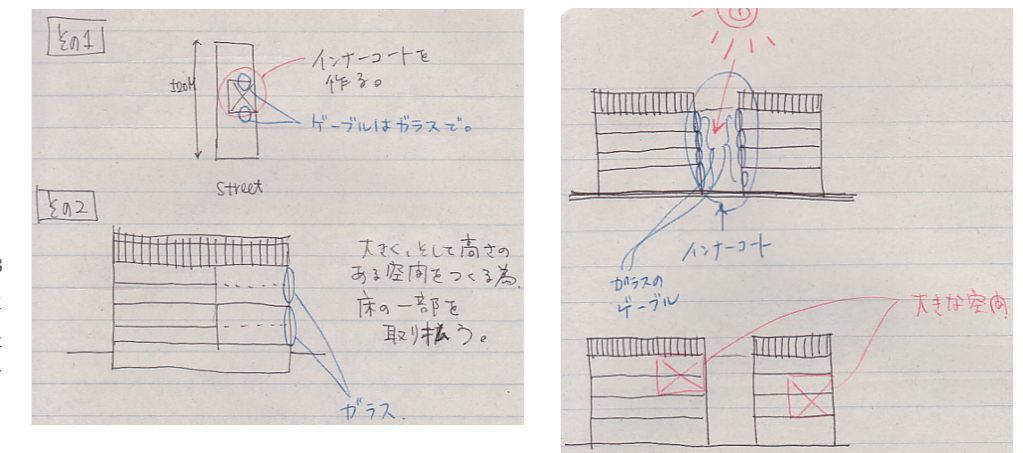 その1
インナーコートを
作る。
ゲーブルはガラスで。
street
その2
大きく、そして高さの
ある空間をつくる為、
床の一部を
取り払う。
ガラス.
インナーコート
ガラスの
ゲーブル
大きな空間